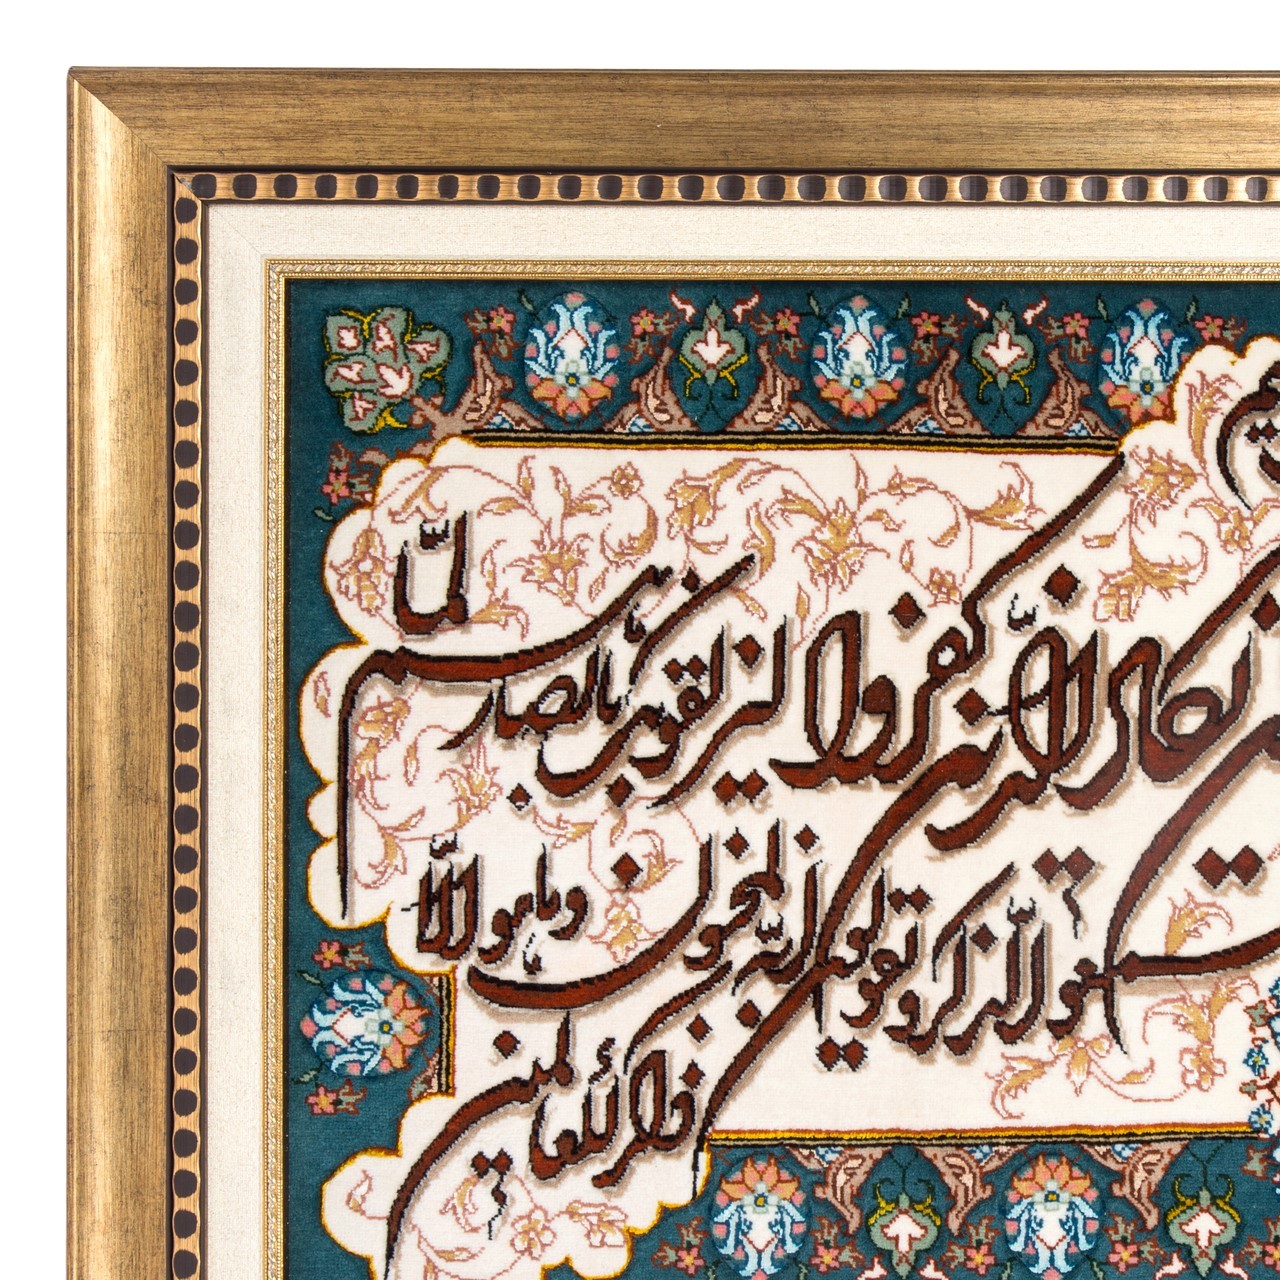 يكاد الذين كفروا ليزلقونك بابصارهم لما
سمعوا الذكر ويقولون انه لمجنون وما هو الا
ذكر للعالمين